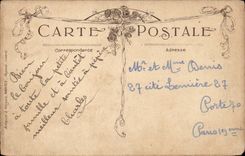 CARTE POSTALE
Correspondance
Adresse
Bien
le bonjour
à toute la petite
famille et à bientôt
meilleure santée à
Charles
Mr et Mme Denis
87 cité Lemière 87
Porte 70
Paris 19me